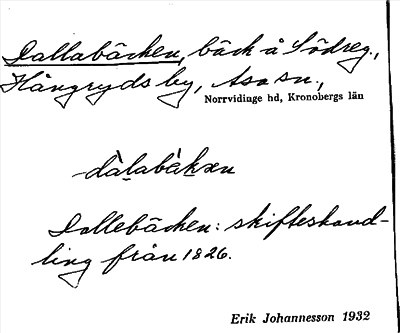 Dallabäcken, bäck å Södreg.,
Hångryds by, Asa sn.,
Norrvidinge hd, Kronobergs län
dàlabä̀kən
Dallebäcken: skifteshand-
ling från 1826.
Erik Johannesson 1932